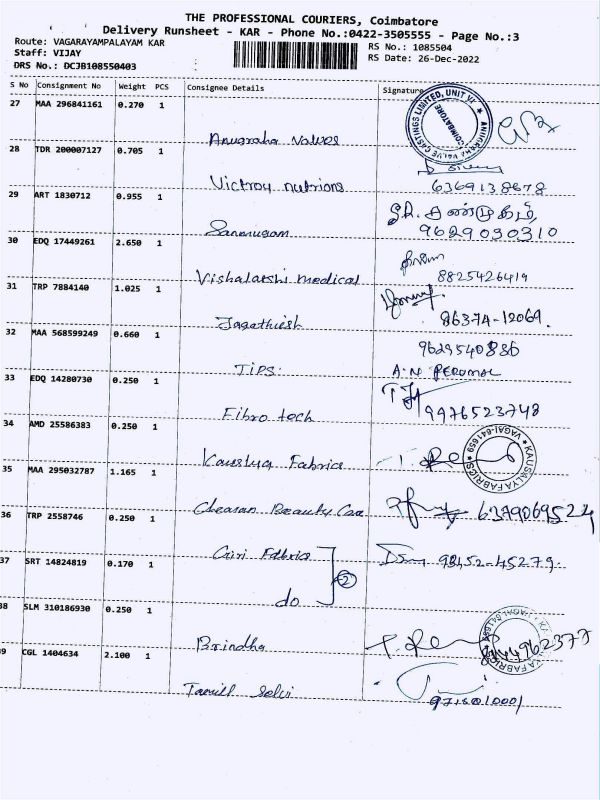 THE PROFESSIONAL COURIERS, Coimbatore
Delivery Runsheet - KAR - Phone No.:0422-3505555 - Page No.:3
Route: VAGARAYAMPALAYAM KAR
RS No.: 1085504
Staff: VIJAY
RS Date: 26-Dec-2022
DRS No.: DCJB108550403
S No Consignment No Weight PCS Consignee Details Signature
27 MAA 296841161 0.270 1
ANUGRAHA VALVE CASTINGS LIMITED, UNIT
COIMBATORE
Anugraha Valves
28 TDR 200007127 0.705 1
Victroy nutrions
6369138678
29 ART 1830712 0.955 1
Sanmugam
9629030310
30 EDQ 17449261 2.650 1
Vishalatshi medical
8825426419
31 TRP 7884140 1.025 1
Jagathiesh
86374-12069.
32 MAA 568599249 0.660 1
9629540836
TIPS.
A.N PERUMAL
33 EDQ 14280730 0.250 1
Fibro tech
9976523748
34 AMD 25586383 0.250 1
Kausalya Fabrics
KAUSALYA FABRICS VAGAI-641659
35 MAA 295032787 1.165 1
Beauty
6379069524
36 TRP 2558746 0.250 1
Fabrics
2
98452-45279.
37 SRT 14824819 0.170 1
do
38 SLM 310186930 0.250 1
Brindha
39 CGL 1404634 2.100 1
Tamill Selvi